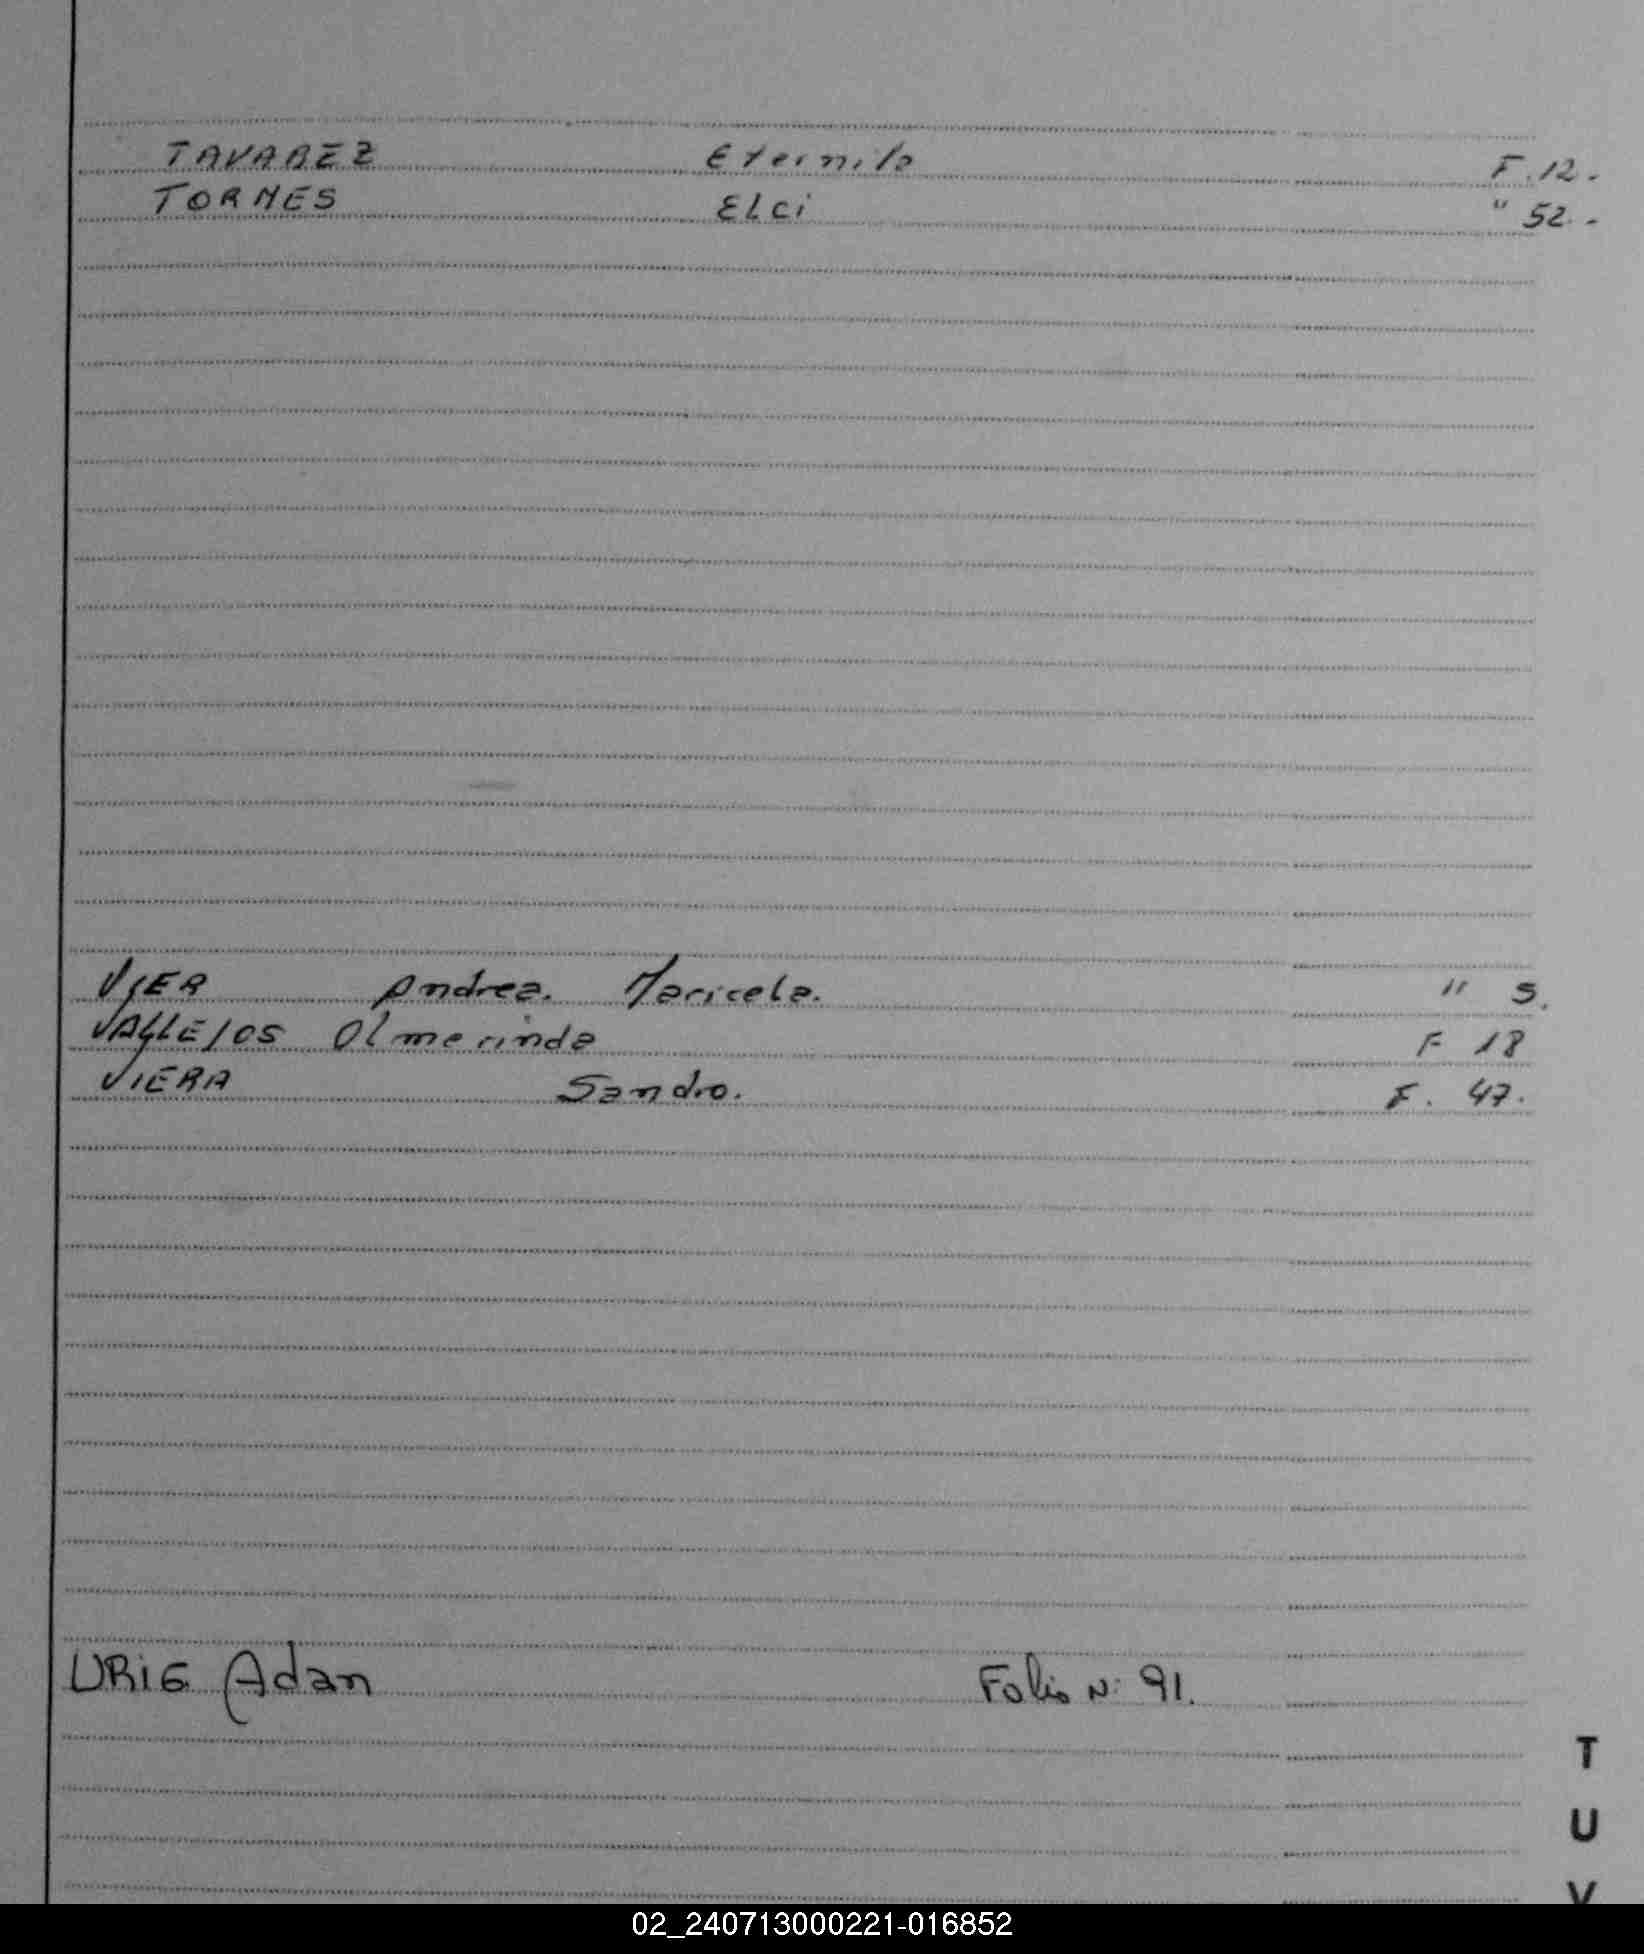 TAVAREZ Eternilo F. 12.
TORNES ELci " 52.-
VIER Andrea. Maricela. " 5.
VALLEJOS Olmerinda F 18
VIERA Sandro. F. 47.
URiG Adan Folio N: 91.
T
U
V
02_240713000221-016852